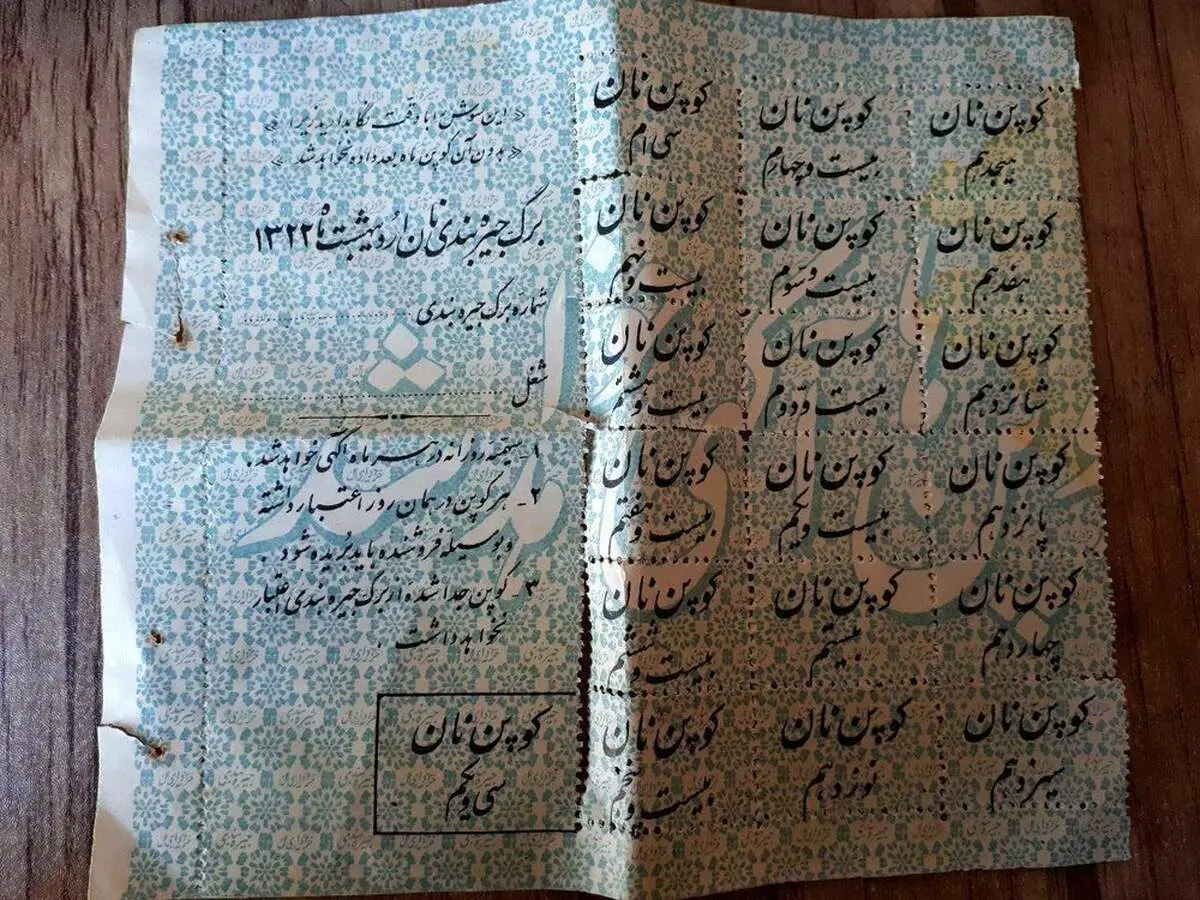 « این سوش را با دقت نگاهدارید زیرا »
« بدون آن کوپن ماه بعد داده نخواهد شد »
برگ جیره بندی نان اردیبهشت ماه ۱۳۲۲
شماره برگ جیره بندی
شغل
۱- سهمیه روزانه در هر ماه آگهی خواهد شد.
۲- هر کوپن در همان روز اعتبار داشته
و بوسیله فروشنده باید بریده شود.
۳- کوپن جدا شده از برگ جیره بندی اعتبار
نخواهد داشت.
کوپن نان
سی و یکم
کوپن نان
هیجدهم
کوپن نان
هفدهم
کوپن نان
شانزدهم
کوپن نان
پانزدهم
کوپن نان
چهاردهم
کوپن نان
سیزدهم
کوپن نان
بیست و چهارم
کوپن نان
بیست و سوم
کوپن نان
بیست و دوم
کوپن نان
بیست و یکم
کوپن نان
بیستم
کوپن نان
نوزدهم
کوپن نان
سی ام
کوپن نان
بیست و نهم
کوپن نان
بیست و هشتم
کوپن نان
بیست و هفتم
کوپن نان
بیست و ششم
کوپن نان
بیست و پنجم